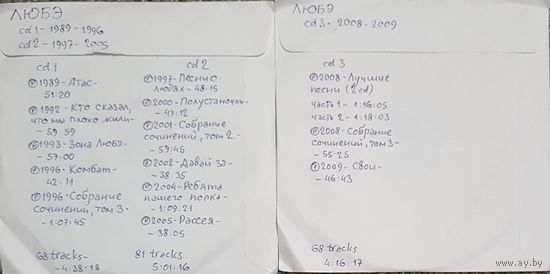 ЛЮБЭ
cd1-1989-1996
cd2-1997-2005
cd1
Ⓟ1989-Атас-
51:20
Ⓟ1992-Кто сказал,
что мы плохо жили-
-59 59
Ⓟ1993-Зона Любэ-
-57:00
Ⓟ1996-Комбат-
42:11
Ⓟ1996-Собрание
сочинений, том 3-
-1:07:45
68 tracks-
-4:38:13
cd2
Ⓟ1997-Песни о
людях-48:15
Ⓟ2000-Полустаночки-
-47:12
Ⓟ2001-Собрание
сочинений, том 2-
-59:45
Ⓟ2002-Давай за-
-38:35
Ⓟ2004-Ребята
нашего полка-
-1:09:21
Ⓟ2005-Рассея-
-38:05
81 tracks
5:01:16
ЛЮБЭ
cd3-2008-2009
cd 3
Ⓟ2008-Лучшие
песни (2cd)
часть 1-1:16:05
часть 2-1:18:03
Ⓟ2008-Собрание
сочинений, том 3-
-55:25
Ⓟ2009-Свои-
-46:43
68 tracks
4:16:17
www.ay.by